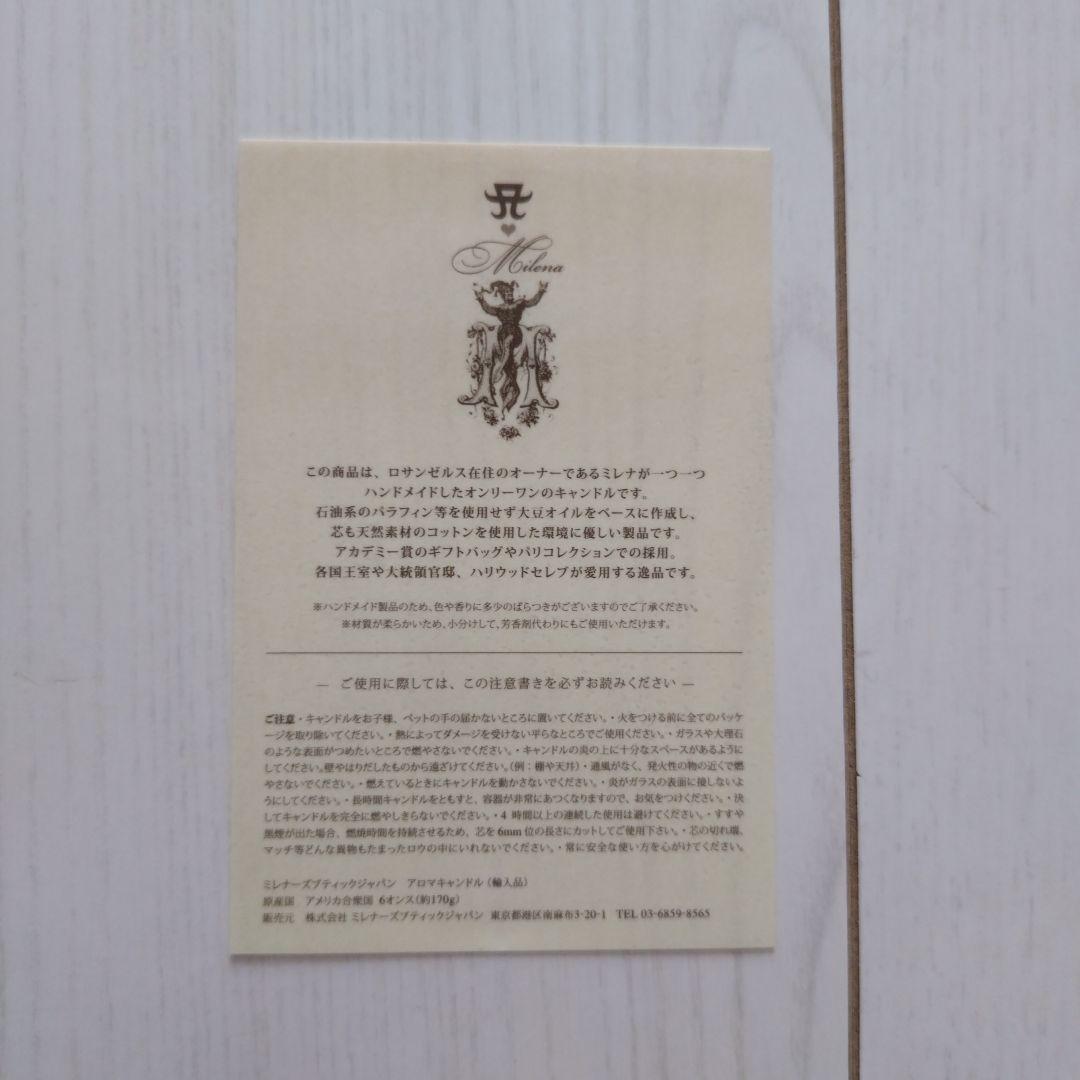 A
Milena
この商品は、ロサンゼルス在住のオーナーであるミレナが一つ一つ
ハンドメイドしたオンリーワンのキャンドルです。
石油系のパラフィン等を使用せず大豆オイルをベースに作成し、
芯も天然素材のコットンを使用した環境に優しい製品です。
アカデミー賞のギフトバッグやパリコレクションでの採用。
各国王室や大統領官邸、ハリウッドセレブが愛用する逸品です。
※ハンドメイド製品のため、色や香りに多少のばらつきがございますのでご了承ください。
※材質が柔らかいため、小分けして、芳香剤代わりにもご使用いただけます。
― ご使用に際しては、この注意書きを必ずお読みください ―
ご注意・キャンドルをお子様、ペットの手の届かないところに置いてください。・火をつける前に全てのパッケ
ージを取り除いてください。・熱によってダメージを受けない平らなところでご使用ください。・ガラスや大理石
のような表面がつめたいところで燃やさないでください。・キャンドルの炎の上に十分なスペースがあるように
してください。壁やはりだしたものから遠ざけてください。(例：棚や天井)・通風がなく、発火性の物の近くで燃
やさないでください。・燃えているときにキャンドルを動かさないでください。・炎がガラスの表面に接しないよ
うにしてください。・長時間キャンドルをともすと、容器が非常にあつくなりますので、お気をつけください。・決
してキャンドルを完全に燃やしきらないでください。・4 時間以上の連続した使用は避けてください。・すすや
黒煙が出た場合、燃焼時間を持続させるため、芯を6mm 位の長さにカットしてご使用下さい。・芯の切れ端、
マッチ等どんな異物もたまったロウの中にいれないでください。・常に安全な使い方を心がけてください。
ミレナーズブティックジャパン アロマキャンドル（輸入品）
原産国 アメリカ合衆国 6オンス(約170g)
販売元 株式会社 ミレナーズブティックジャパン 東京都港区南麻布3-20-1 TEL 03-6859-8565